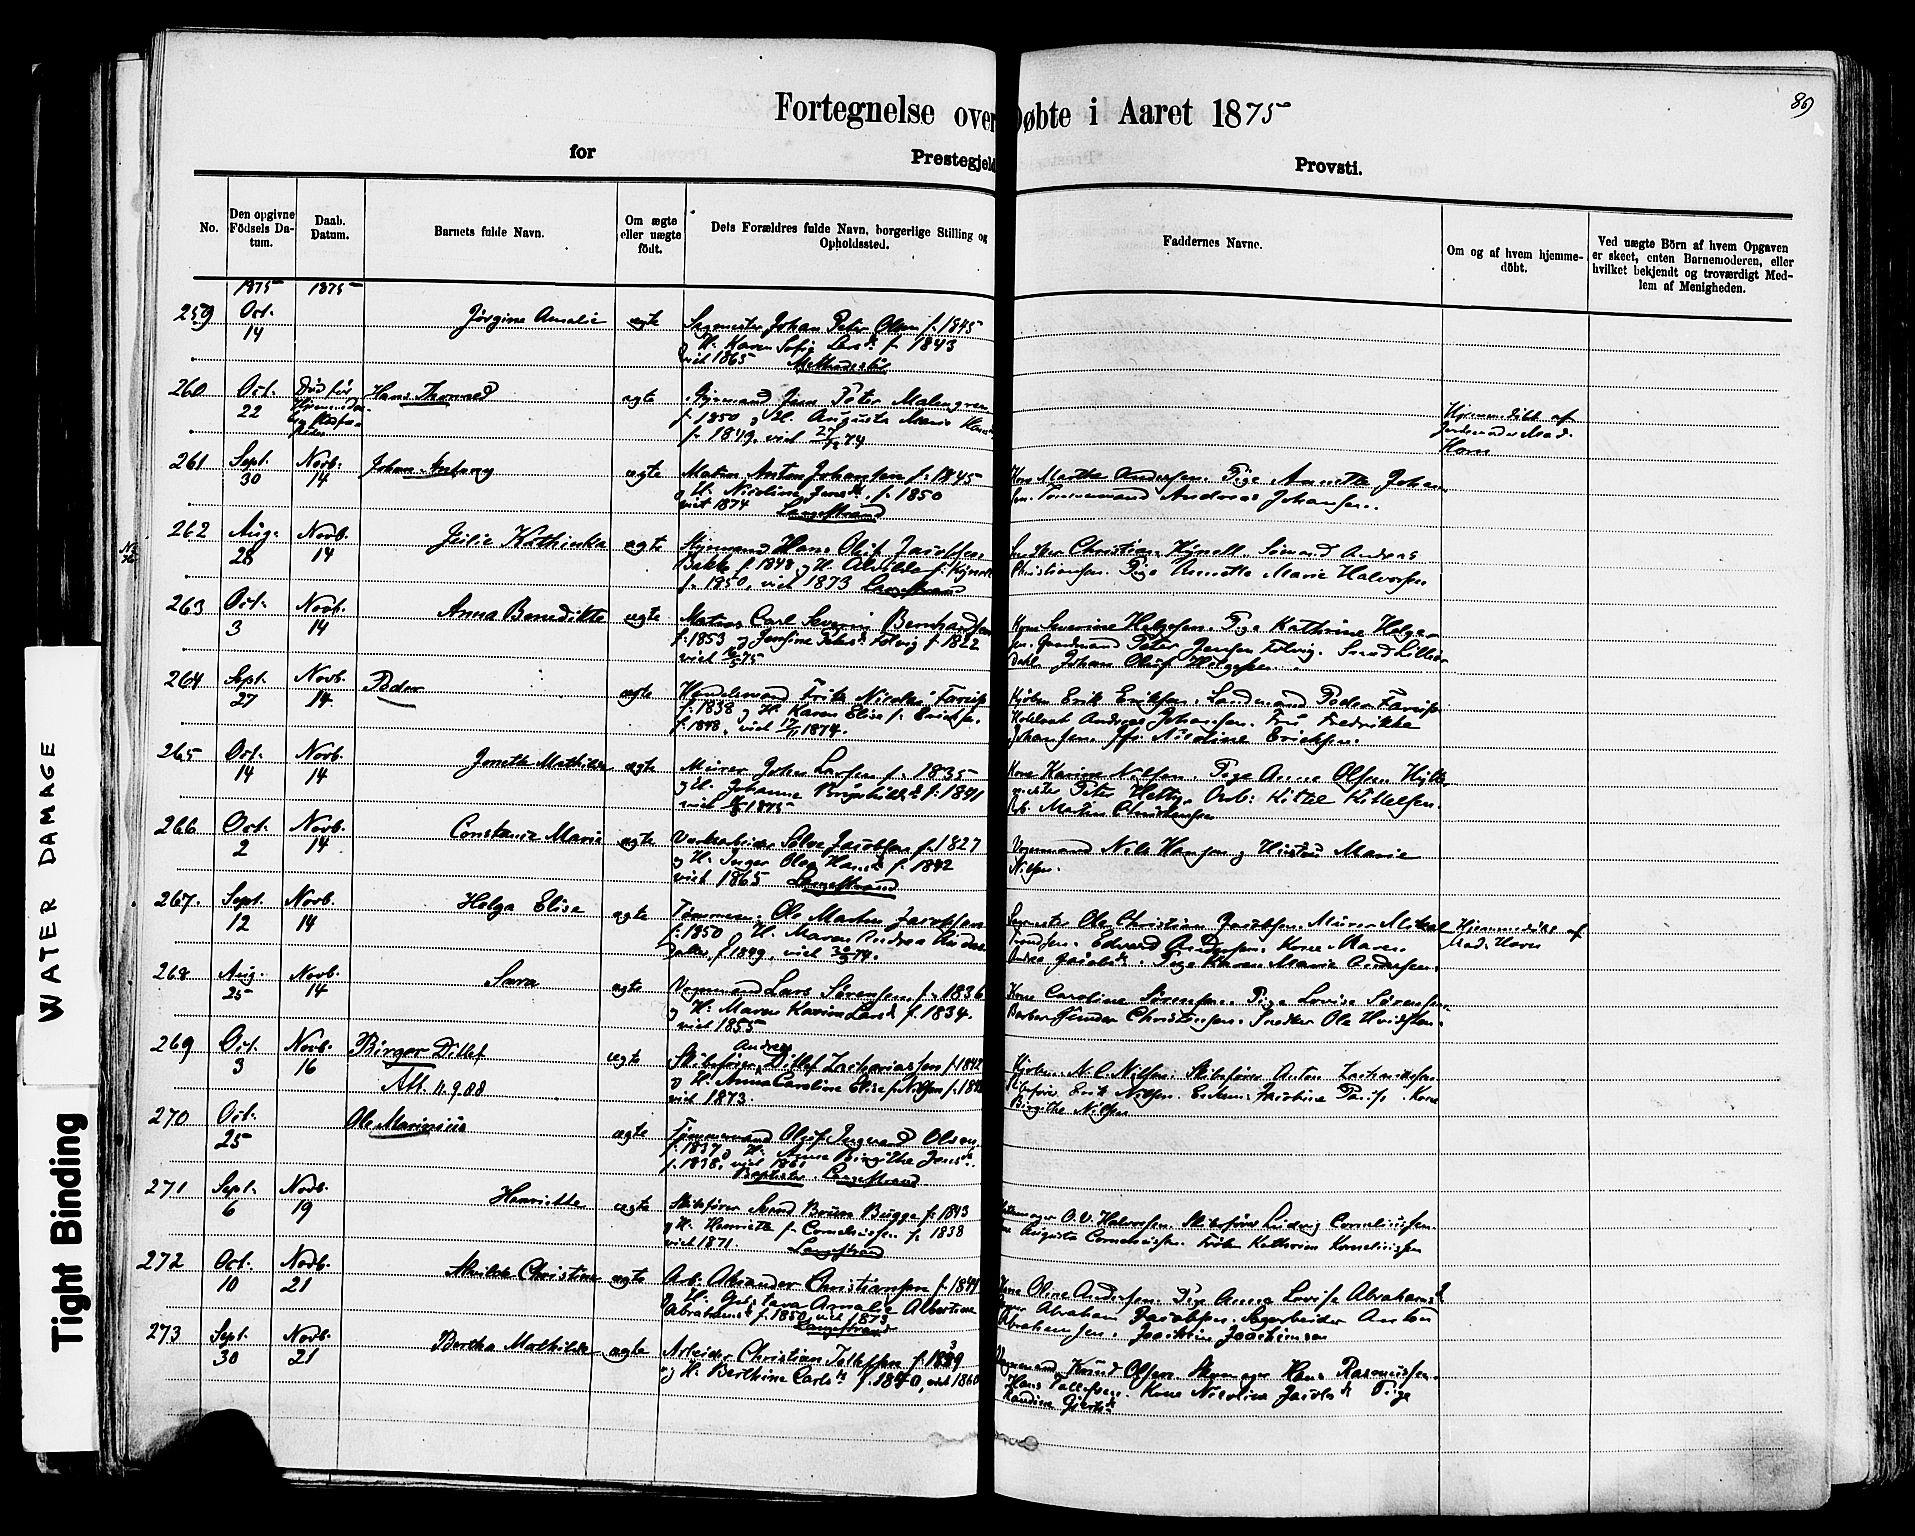 Fortegnelse over Døbte i Aaret 1875
89
for Prestegjeld Provsti.
No. Den opgivne Fødsels Datum. Daab. Datum. Barnets fulde Navn. Om ægte eller uægte født. Dets Forældres fulde Navn, borgerlige Stilling og Opholdssted. Faddernes Navne. Om og af hvem hjemmedöbt. Ved uægte Börn af hvem Opgaven er skeet, enten Barnemoderen, eller hvilket bekjendt og troværdigt Medlem af Menigheden.
1875 1875
259 Oct. 14 Jörgine Amalie ægte Sagmester Johan Peter Olsen f. 1845
og H. Karen Sofie Larsd. f. 1843
viet 1865 Methodister
260 Oct. 22 Död för Hans Thomas ægte Styrmand Jens Peter Malmgren
f. 1850 og H. Augusta Marie
f. 1849, viet 74
Hjemmedöbt af Jordemoder Mad. Horn
261 Sept. 30 Novb. 14 Johan Antony ægte Matros Anton Johansen f. 1845
og H. Nicoline Jensd. f. 1850
viet 1874 Langestrand
Kone Marthe Andersen. Pige Annette Johansen. Tømmermand Andreas Johansen.
262 Aug. 28 Novb. 14 Julie Kathinka ægte Styrmand Hans Oluf Jacobsen
Bakke f. 1848 og H.
f. 1850, viet 1873 Langestrand
Snedker Christian Sömand Andreas
Christiansen. Pige Annette Marie Halvorsen
263 Oct. 3 Novb. 14 Anna Benedikte ægte Matros Carl Severin Bernhardsen
f. 1853 og Josefine Peters. Folvig f. 1822
viet 75
Kone Severine Helgesen. Pige Kathrine Helgesen. Peter Jensen Folvig.
Johan Oluf Helgesen.
264 Sept. 27 Novb. 14 Peder ægte Handelsmand Frits Nicolai
f. 1838 og H. Karen Elise f. Ericksen
f. 1848, viet 1874.
Kjöbm. Erik Eriksen. Landmand Peder
Andreas Johansen. Fru Fredrikke
Johansen. Jfr. Nicoline Ericksen.
265 Oct. 14 Novb. 14 Jonette Mathilde ægte Murer Johan Larsen f. 1835
og H. Johanne f. 1841
viet 1875
Kone Karine Nilsen. Pige Anne Olsen
Peter Arb. Kittel Kittelsen.
Arb. Martin Christensen
266 Oct. 2 Novb. 14 Constance Marie ægte Jacobsen f. 1827
og H. Inger Olea Hansd. f. 1842
viet 1865 Langestrand
Vognmand Nils Hansen og Hustru Marie
Nilsen.
267. Sept. 12 Novb. 14 Helga Elise ægte Tømmerm. Ole Martin Jacobsen
f. 1850 H. Maren Andrea
f. 1849, viet 74.
Sagmester Ole Christian Jacobsen. Murer Mikal
Edvard Andersen. Kone Maren
Andrea Jacobsd. Pige Karen Marie Andersen.
Hjemmedöbt af Mad. Horn
268 Aug. 25 Novb. 14 Sara ægte Vognmand Lars Sörensen f. 1836
og H. Maren Karine Larsd. f. 1834.
viet 1855
Kone Caroline Sörensen. Pige Lovise Sörensen
Barber Christensen. Snedker Ole
269 Oct. 3 Novb. 16 Birger Ditlef ægte Andreas
Skibsförer Ditlef Zachariassen f. 1842
og H. Anna Caroline Elise f. Nilsen
viet 1873
Att. 11.9.08
Kjöbm. N. C. Nilsen. Skibsförer Anton Zachariassen
Skibsförer Erik Nilsen. Jacobine Kone
Birgithe Nilsen
270 Oct. 25 Ole Marinius ægte Tömmermand Oluf Ingvard Olsen
f. 1837 og H. Anne Birgithe Jensd.
f. 1838, viet 1861
Baptister. Langestrand
271 Sept. 6 Novb. 19 Henriette ægte Skibsförer Bruun Bugge f. 1843
og H. Henriette f. Corneliussen f. 1838
viet 1871. Langestrand
O. V. Halvorsen. Skibsförer Ludvig Corneliussen.
Augusta Corneliussen. Frök. Kathrine Korneliussen
272 Oct. 10 Novb. 21 Christine ægte Arb. Alexander Christiansen f. 1849
og H. Gustava Amalie Albertine
Abrahamsd. f. 1850, viet 1873
Langestrand
Kone Oline Andersen. Pige Anna Lovise Abrahamsd.
Abraham Jacobsen. Sagarbeider Anton
Abrahamsen. Joakim Joachimsen
273 Sept. 30 Novb. 21 Bertha Mathilde ægte Arbeider Christian Tollefsen f. 1839
og H. Berthine Carlsd. f. 1840, viet 1860
Vognmand Knud Olsen. Skomager Hans Rasmussen.
Hans Tollefsen. Kone Nicoline Jacobsd. Pige
WATER DAMAGE
Tight Binding